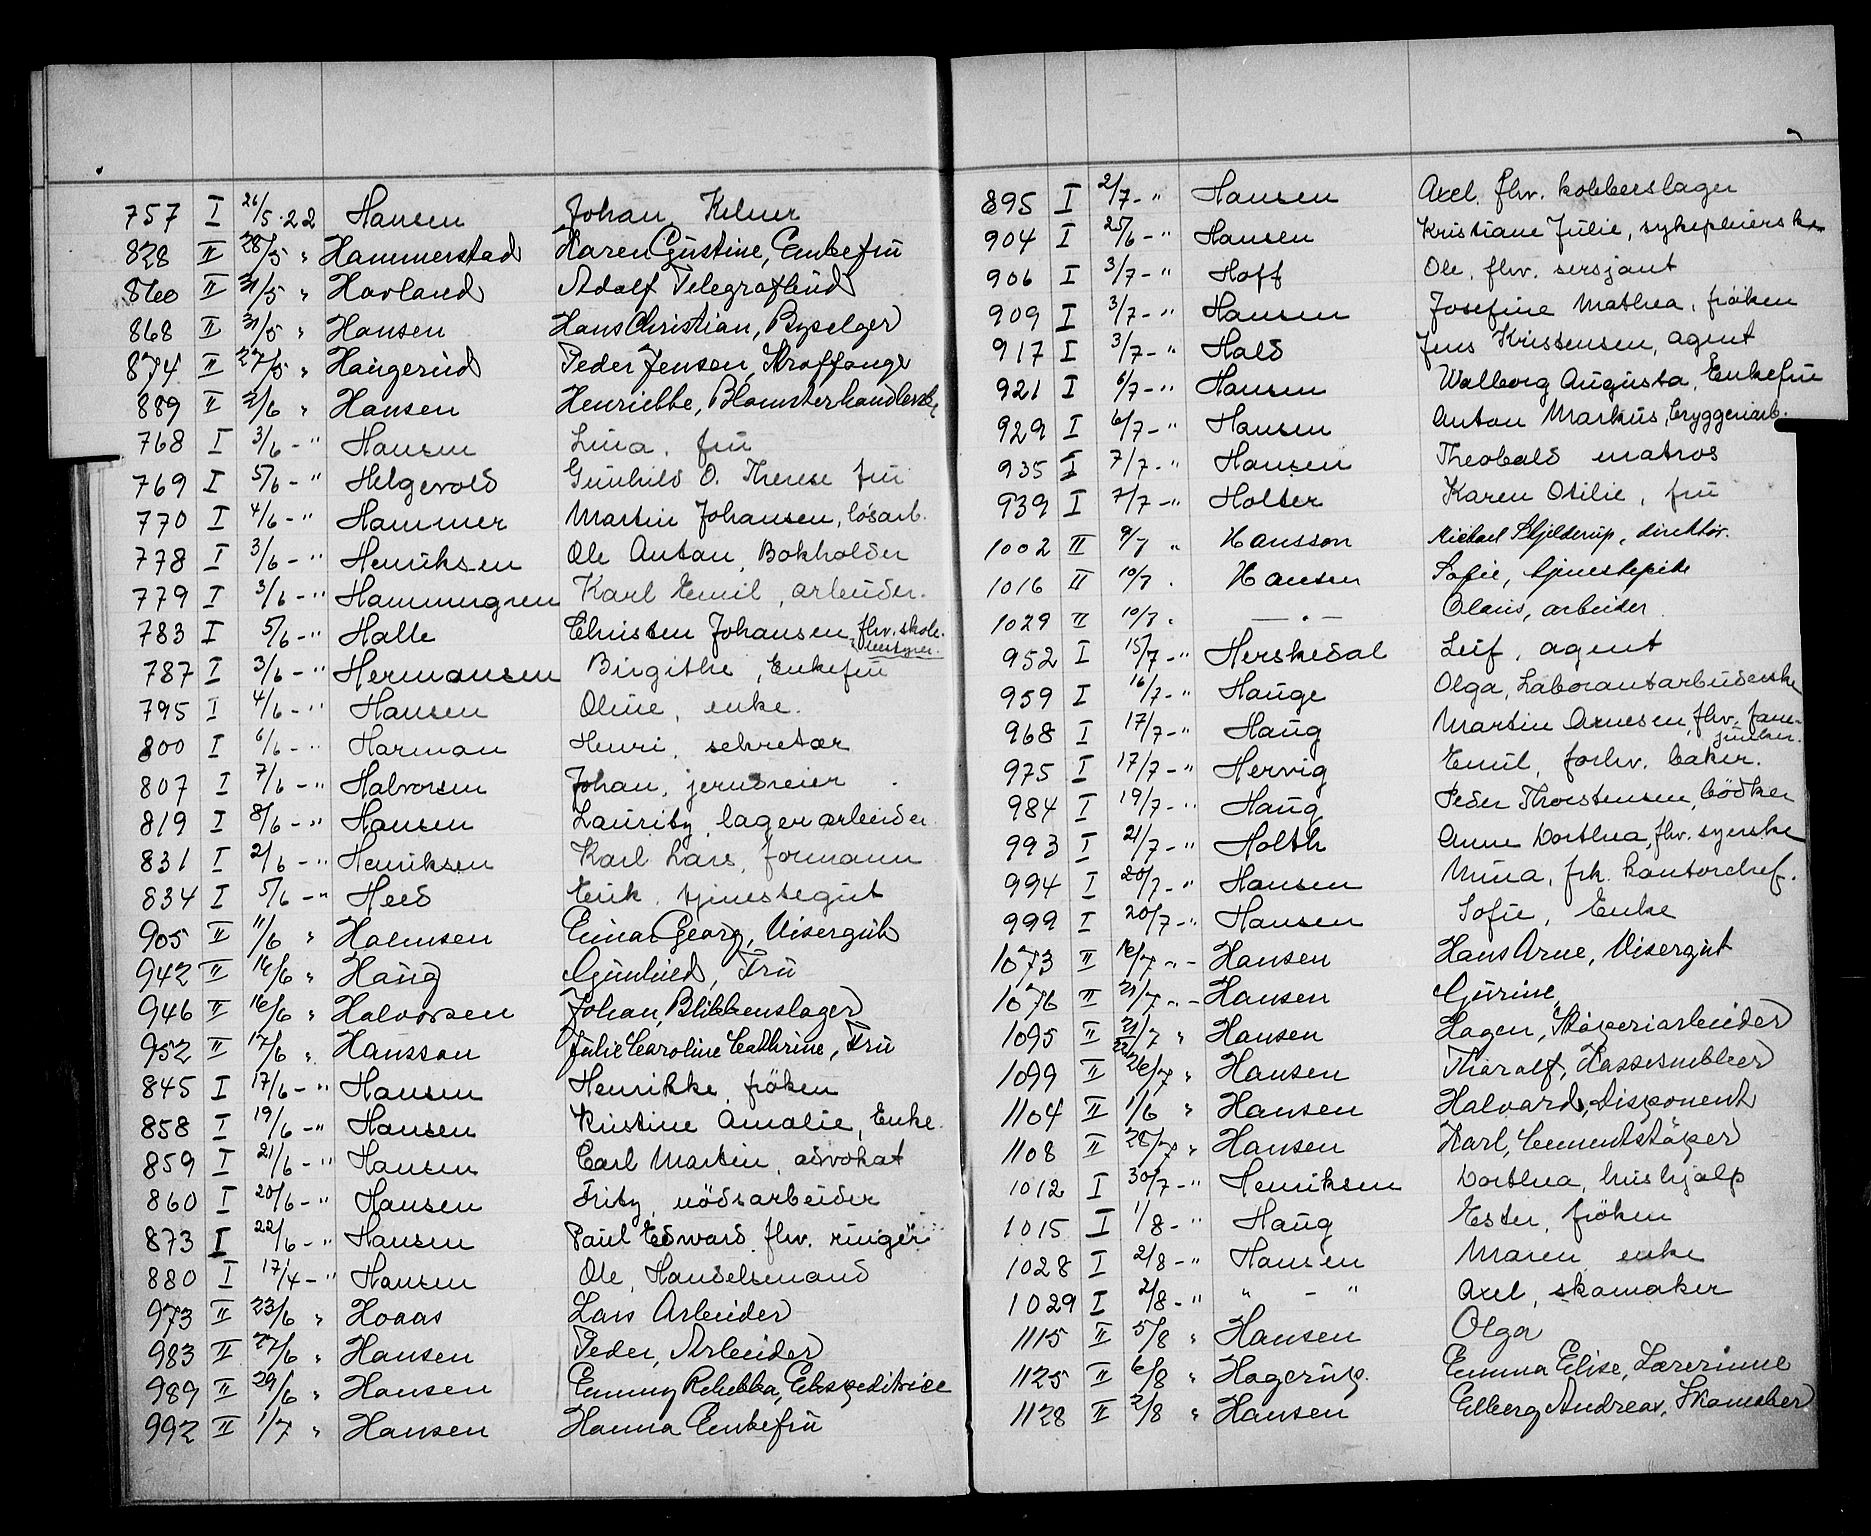 757 I 26/5-22 Hansen Johan, Kelner
828 II 28/5 " Hammerstad Karen Gustine, Enkefru
860 II 31/5 " Havland Adolf Telegrafbud
868 II 31/5 " Hansen Hans Christian, Byselger
874 II 27/5 " Haugerud Peder Jensen, Straffange
889 II 2/6 " Hansen Henriette, Blomsterhandlerske
768 I 3/6 - " Hansen Lina, fru
769 I 5/6 - " Helgevold Gunhild O. Therese fru
770 I 4/6 - " Hammer Martin Johansen, løsarb.
778 I 3/6 - " Henriksen Ole Anton, Bokholder
779 I 3/6 - " Hammergren Karl Emil, arbeider.
783 I 5/6 - " Halle Christen Johansen, fhv. skole-
bestyrer.
787 I 3/6 - " Hermansen Birgithe, Enkefru
795 I 4/6 - " Hansen Oline, enke.
800 I 6/6 - " Harman Henri, sekretær
807 I 7/6 - " Halvorsen Johan, jerndreier
819 I 8/6 - " Hansen Lauritz, lagerarbeider
831 I 2/6 - " Henriksen Karl Lars, formann
834 I 5/6 - " Heed Erik, tjenestegut
905 II 11/6 " Halmsen Einar Georg, Visergut
942 II 14/6 " Haug Gunhild, Fru
946 II 16/6 " Halvorsen Johan, Blikkenslager
952 II 17/6 " Hansson Julie Caroline Cathrine, Fru
845 I 17/6 - " Hansen Henrikke, frøken
858 I 19/6 - " Hansen Kristine Amalie, Enke.
859 I 21/6 - " Hansen Carl Martin, advokat
860 I 20/6 - " Hansen Fritz, nødsarbeider
873 I 22/6 - " Hansen Paul Edvard, fhv. ringer
880 I 17/4 - " Hansen Ole, Handelsmand
973 II 23/6 " Hoaas Lars Arbeider
983 II 27/6 " Hansen Peder, Arbeider
989 II 29/6 " Hansen Emmy Rebekka, Ekspeditrice
992 II 1/7 " Hansen Hanna Enkefru
895 I 2/7 - " Hansen Axel, fhv. kobberslager
904 I 25/6 - " Hansen Kristiane Julie, sykepleierske
906 I 3/7 - " Hoff Ole, fhv. sersjant
909 I 3/7 - " Hansen Josefine Mathea, frøken
917 I 3/7 - " Hald Jens Kristensen, agent
921 I 6/7 - " Hansen Walborg Augusta, Enkefru
929 I 6/7 - " Hansen Anton Markus, bryggeriarb.
935 I 7/7 - " Hansen Theobald matros
939 I 7/7 - " Holter Karen Otilie, fru
1002 II 9/7 " Hansson Michael Skjelderup, direktør.
1016 II 10/7 " Hansen Sofie, tjenestepike
1029 II 10/7 " — " — Olaus, arbeider
952 I 15/7 - " Herskedal Leif, agent
959 I 16/7 - " Hauge Olga, Laborantarbeiderske
968 I 17/7 - " Haug Martin Arnesen, fhv. fane-
junker.
975 I 17/7 - " Hervig Emil, forhv. baker.
984 I 19/7 - " Haug Peder Thorstensen, bødker
993 I 21/7 - " Holth Anne Dorthea, fhv. syerske
994 I 20/7 - " Hansen Mina, frk. kontorchef.
999 I 20/7 - " Hansen Sofie, Enke
1073 II 16/7 " - Hansen Hans Arne, Visergut
1076 II 21/7 " - Hansen Gurine,
1095 II 21/7 " Hansen Hagen, Støperiarbeider
1099 II 26/7 " Hansen Tharalf, Kassesnekker
1104 II 1/6 " Hansen Halvard, Disponent
1108 II 28/7 " Hansen Karl, Cementstøper
1012 I 30/7 - " Henriksen Dorthea, hushjelp
1015 I 1/8 - " Haug Ester, frøken
1028 I 2/8 - " Hansen Maren enke
1029 I 2/8 - " " - " Axel, skomaker
1115 II 5/8 " Hansen Olga
1125 II 6/8 " Hagerup. Emma Elise, Lærerinne
1128 II 2/8 " Hansen Elberg Andreas, Skomaker